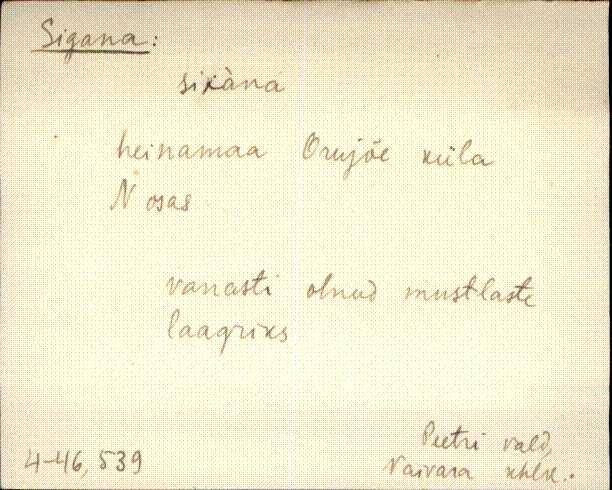 Sigana:
sikàna
heinamaa Orujõe küla
N osas
vanasti olnud mustlaste
laagriks
Peetri vald,
4-46, 539
Vaivara khlk..